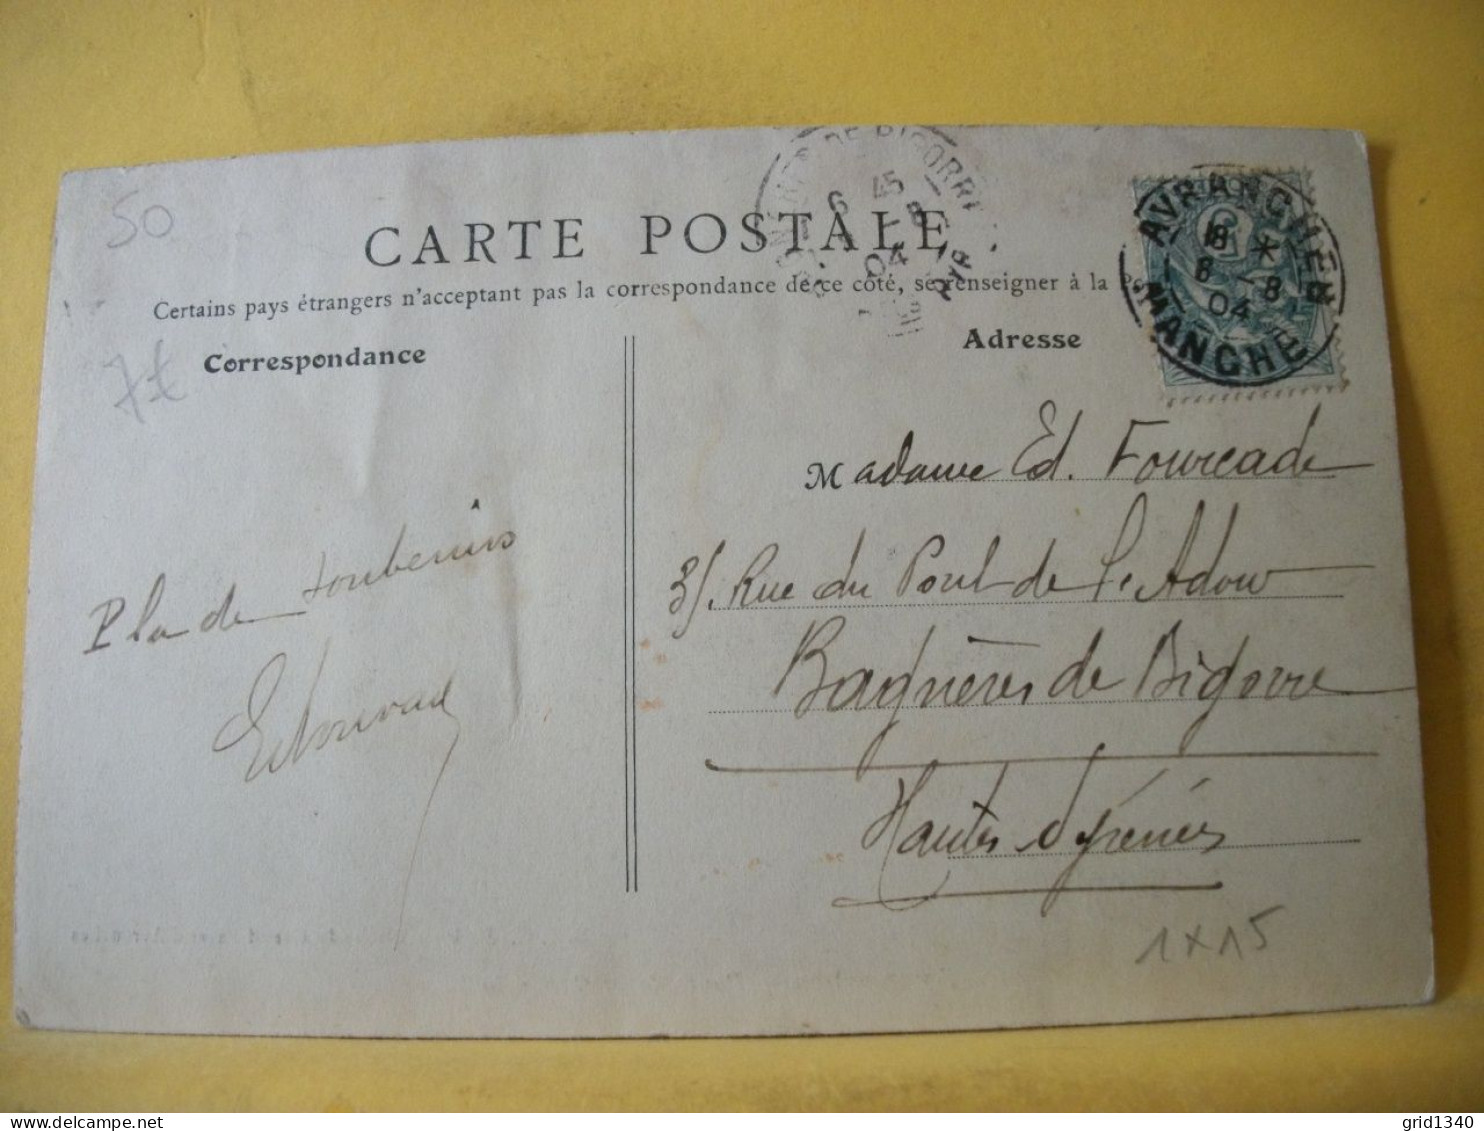 50
CARTE POSTALE
Certains pays étrangers n'acceptant pas la correspondance de ce côté, se renseigner à la
Correspondance
Adresse
7€
AVRANCHES
18 *
6 -8
04
MANCHE
DE BIGORRE
6 45
-8
04
Madame Ed. Fourcade
3/. Rue du Pont de l'Adour
Bagnères de Bigorre
Hautes Pyrénées
Edouard
1x15
grid1340